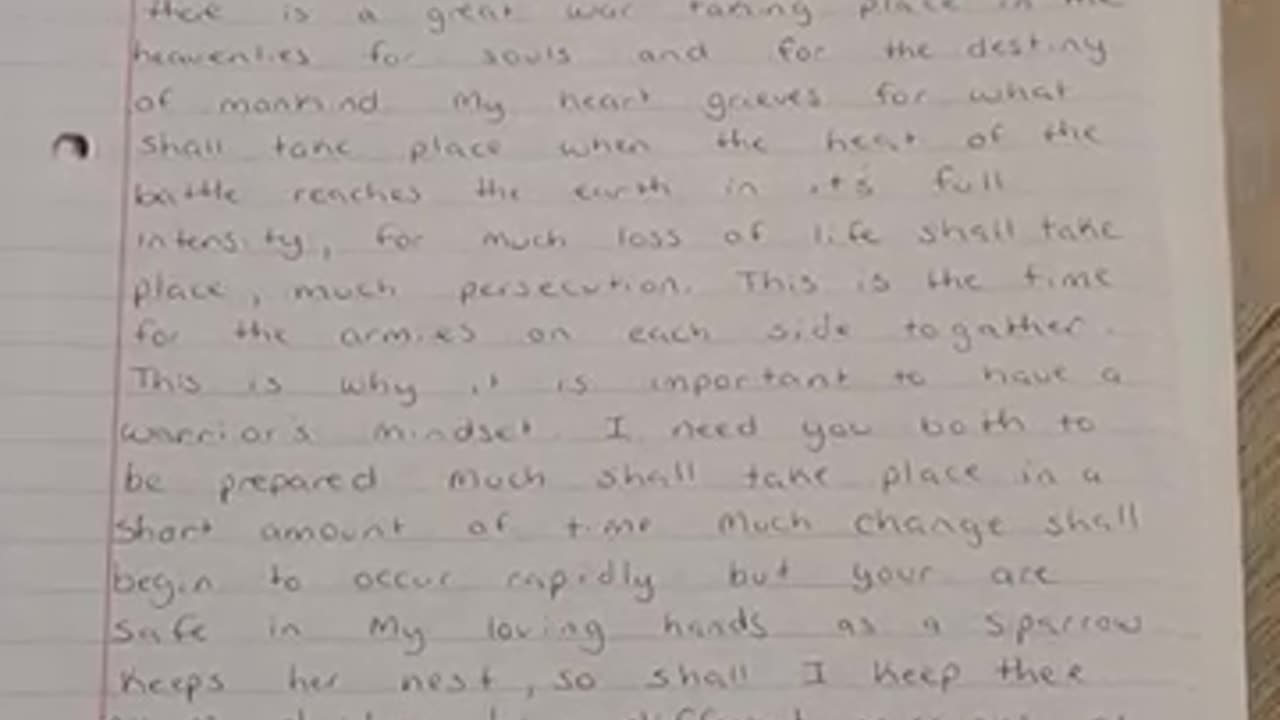 there is a great war taking place in the
heavenlies for souls and for the destiny
of mankind My heart grieves for what
shall take place when the heat of the
battle reaches the earth in it's full
intensity, for much loss of life shall take
place, much persecution. This is the time
for the armies on each side to gather.
This is why it is important to have a
warrior's mindset. I need you both to
be prepared Much shall take place in a
short amount of time Much change shall
begin to occur rapidly but your are
safe in My loving hands as a sparrow
keeps her nest, so shall I keep thee